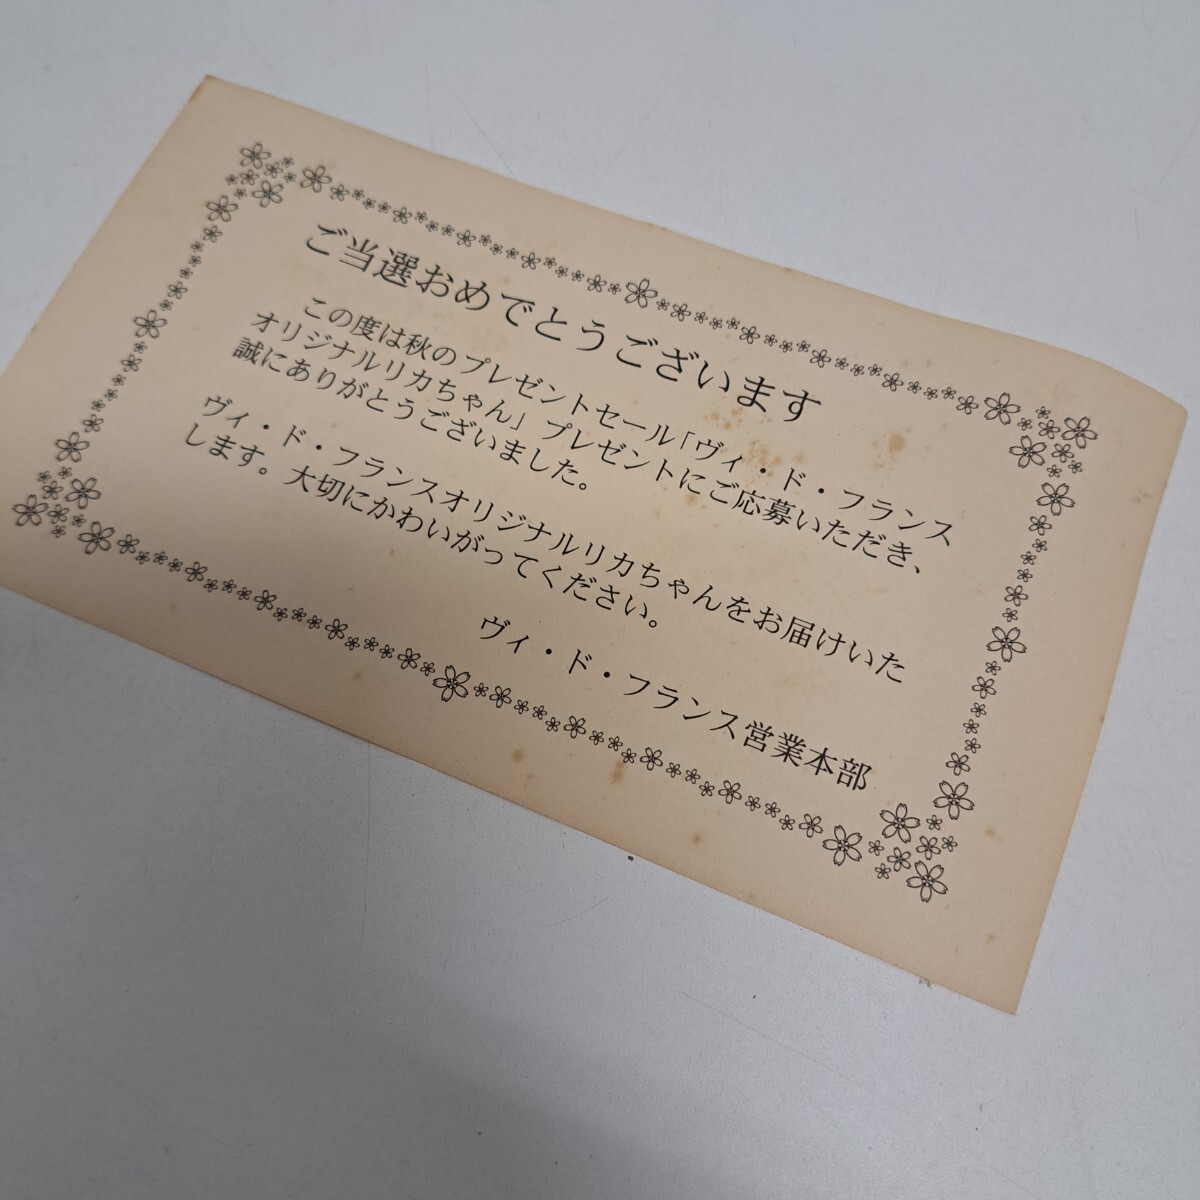 ご当選おめでとうございます
この度は秋のプレゼントセール「ヴィ・ド・フランス
オリジナルリカちゃん」プレゼントにご応募いただき、
誠にありがとうございました。
ヴィ・ド・フランスオリジナルリカちゃんをお届けいた
します。大切にかわいがってください。
ヴィ・ド・フランス営業本部